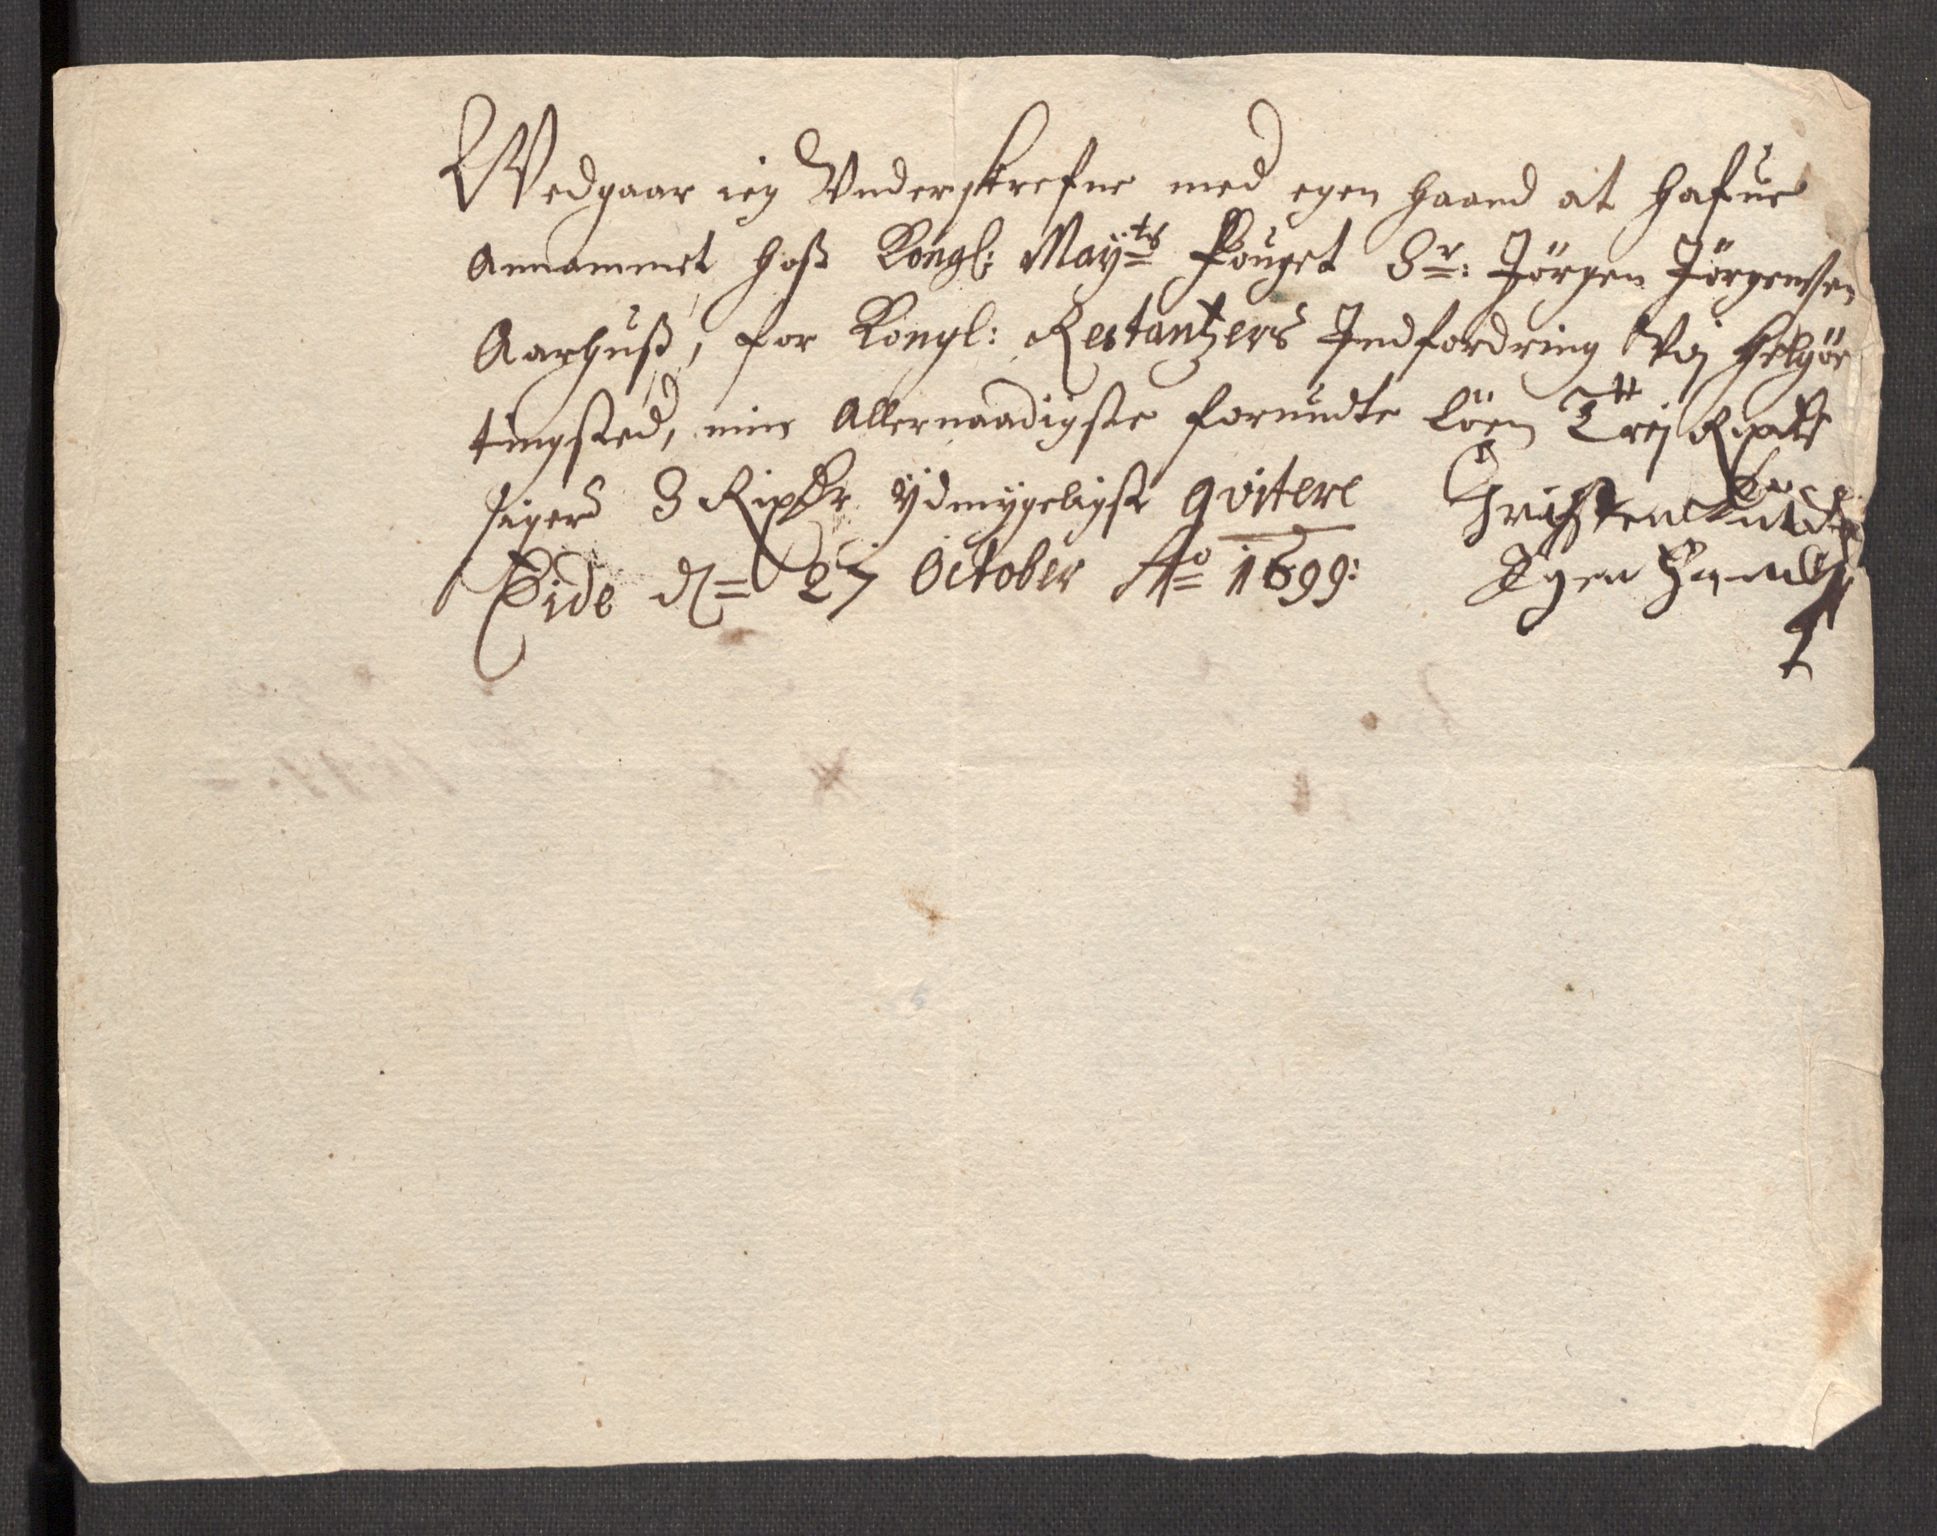 Wedgaar ieg Vnderskrefne med egen haand at hafue
Annammet hoss Kongl: May:ts Fouget Sr: Jörgen Jörgenssen
Aarhuss, for Kongl: Restantzers Indfordring Paa Helgöe
tingsted, min Allernaadigste forundte löen Trej Rixdlr
siger 3 Rixdlr Ydmygeligst qvitere Christen
Eide d= 27 October Ao 1699: Egen Haand